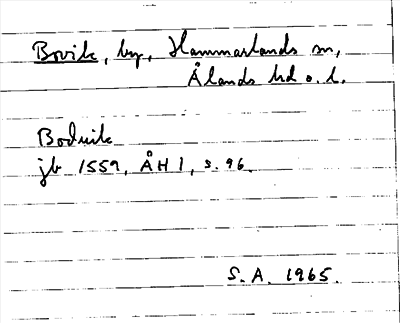 Bovik, by, Hammarlands sn,
Ålands hd o. l.
Boduik
jb 1559, ÅH 1, s. 96.
S.A. 1965.